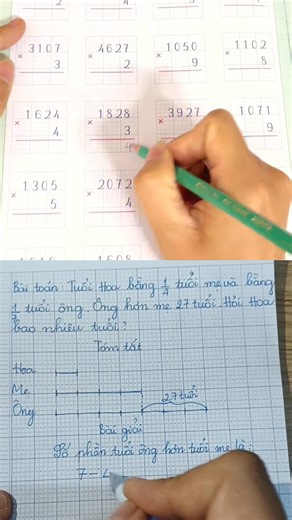 3107 4627 1050 1102
× 3 × 2 × 9 × 8
1624 1828 3927 1071
× 4 × 3 × × 9
4
1305 2072
× 5 × 4
1608
Bài toán: Tuổi Hoa bằng 1/4 tuổi mẹ và bằng
1/7 tuổi ông. Ông hơn mẹ 27 tuổi. Hỏi Hoa
bao nhiêu tuổi?
Tóm tắt
Hoa
Mẹ
27 tuổi
Ông
Bài giải
Số phần tuổi ông hơn tuổi mẹ là:
7-4